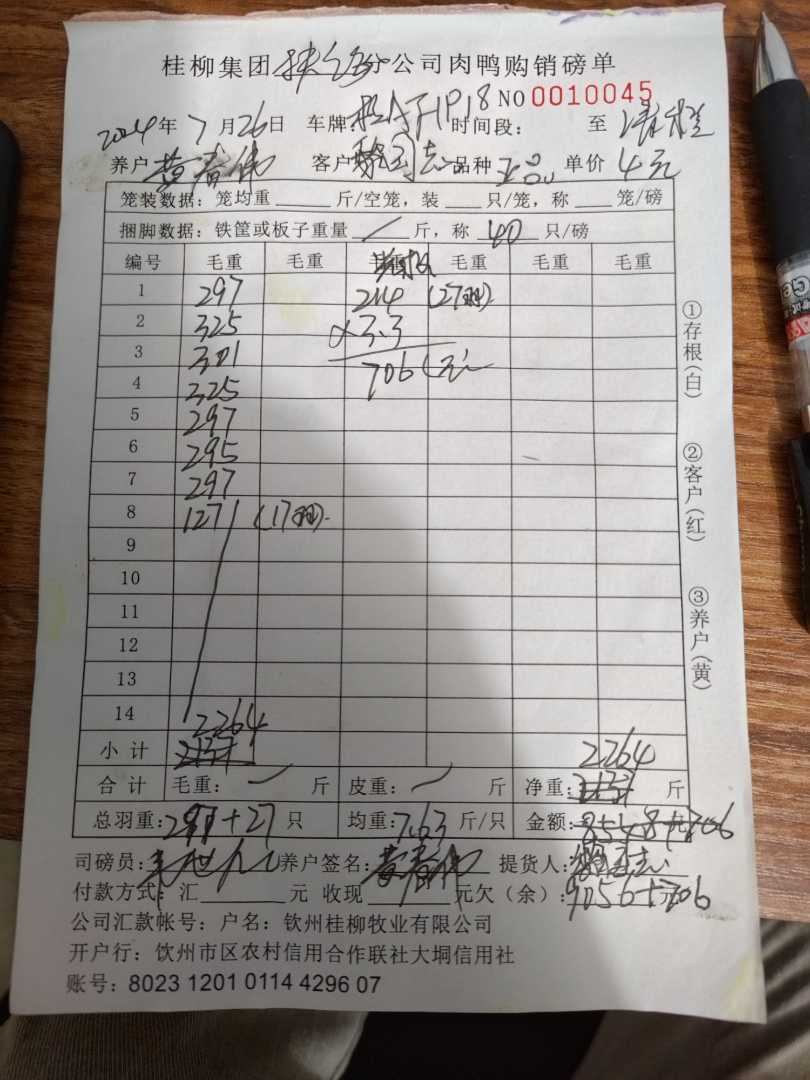 桂柳集团 分公司肉鸭购销磅单
NO 0010045
2024年7月26日 车牌 时间段: 至
养户 黄春伟 客户 品种 单价 4元
笼装数据: 笼均重 斤/空笼, 装 只/笼, 称 笼/磅
捆脚数据: 铁筐或板子重量 / 斤, 称 40 只/磅
编号 毛重 毛重 毛重 毛重 毛重
1 297 214 (27羽)
2 325 ×3.3
3 301 706(元)
4 325
5 297
6 295
7 297
8 127 (17羽).
9
10
11
12
13
14
2264
小计 2264
合计 毛重: 斤 皮重: 斤 净重: 斤
总羽重: 297+27 只 均重: 7.63 斤/只 金额: 8548+706
司磅员: 养户签名: 黄春伟 提货人:
付款方式: 汇 元 收现 元欠(余): 9056+706
公司汇款帐号: 户名: 钦州桂柳牧业有限公司
开户行: 饮州市区农村信用合作联社大垌信用社
账号: 8023 1201 0114 4296 07
①存根(白)
②客户(红)
③养户(黄)